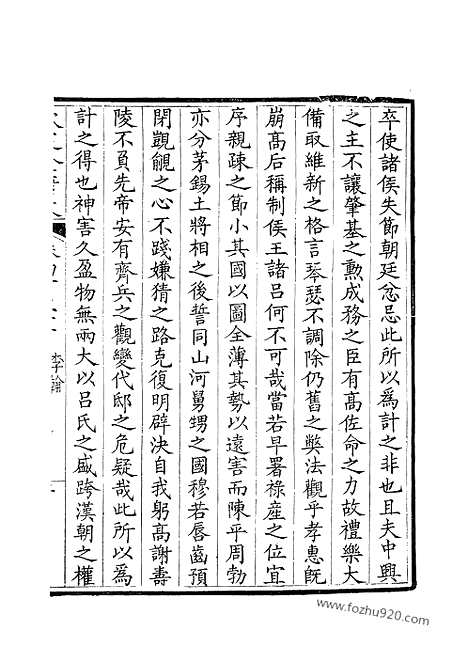 卒使諸侯失節朝廷忿忌此所以爲計之非也且夫中興
之主不讓肇基之勲成務之臣有高佐命之力故禮樂大
備取維新之格言琴瑟不調除仍舊之獘法觀乎孝惠旣
崩高后稱制侯王諸吕何不可哉當若早署祿產之位宜
序親疎之節小其國以圖全薄其勢以遠害而陳平周勃
亦分茅錫土將相之後誓同山河舅甥之國穆若唇齒預
閉觀覦之心不踐嫌猜之路克復明辟決自我躬高謝壽
陵不負先帝安有齊兵之觀變代邸之危疑哉此所以爲
計之得也神害久盈物無兩大以吕氏之盛跨漢朝之權
www.fozhu920.com